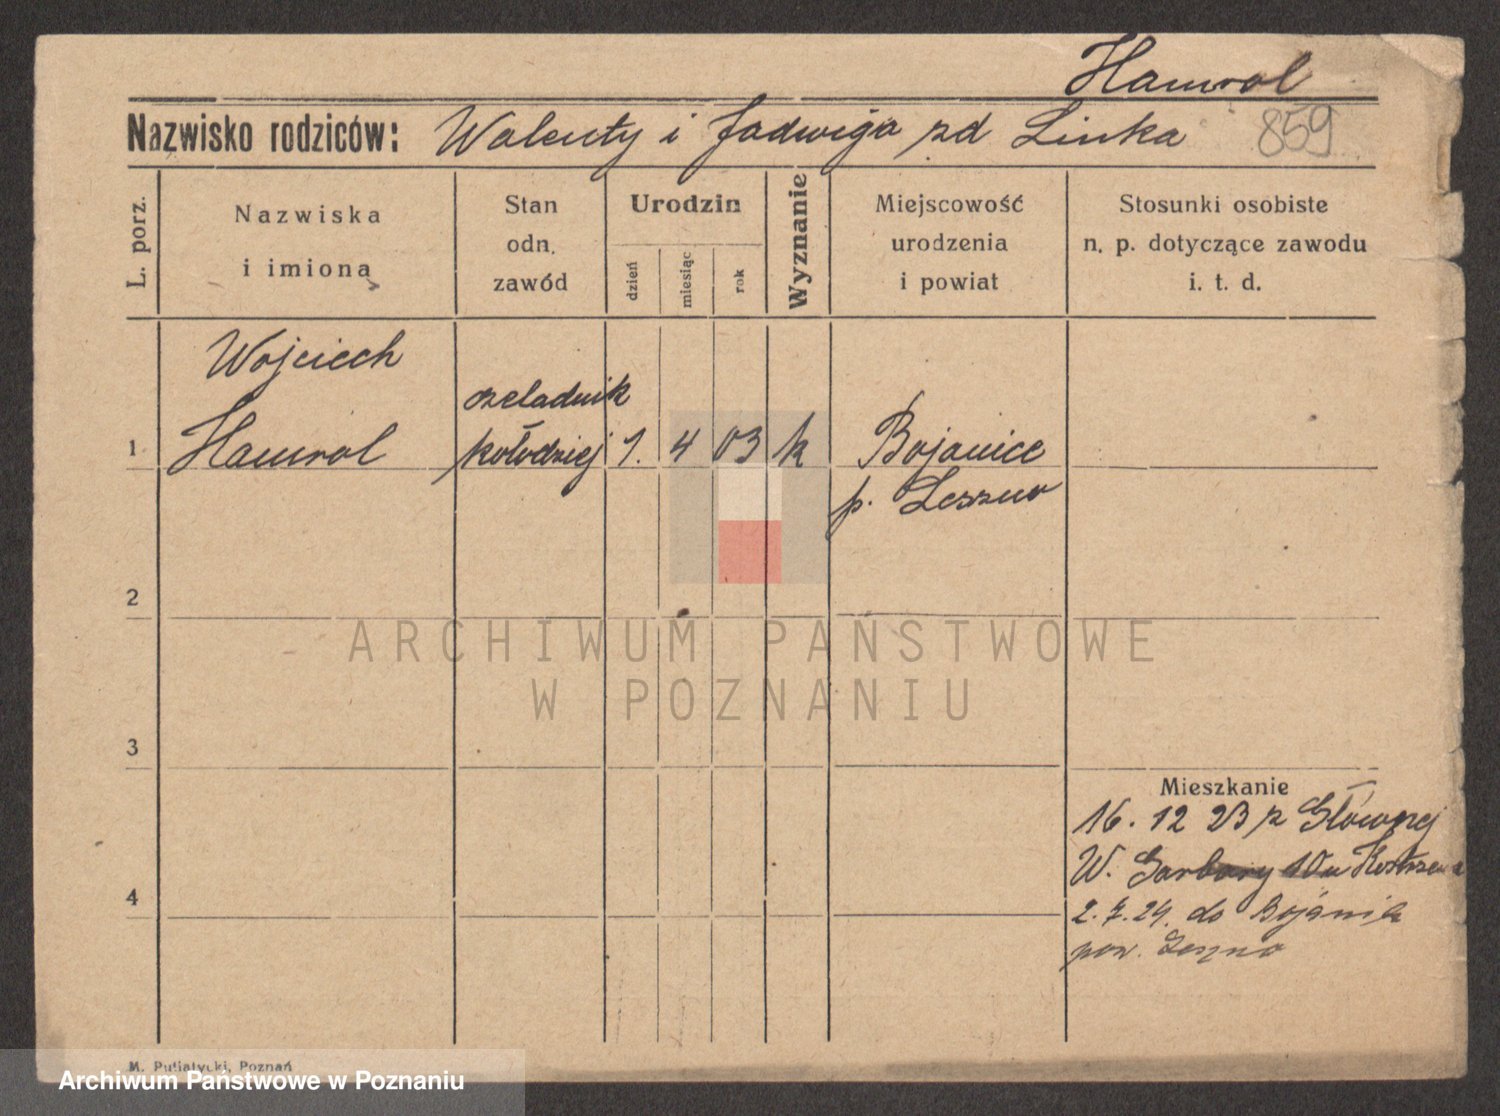 Hamrol
Nazwisko rodziców: Walenty i Jadwiga zd Linka 859
L. porz.
Nazwiska
i imiona
Stan
odn.
zawód
Urodzin
dzień
miesiąc
rok
Wyznanie
Miejscowość
urodzenia
i powiat
Stosunki osobiste
n. p. dotyczące zawodu
i. t. d.
Wojciech
czeladnik
1 Hamrol kołodziej 1. 4 03 k Bojanice
p. Leszno
2
ARCHIWUM PAŃSTWOWE
W POZNANIU
3
Mieszkanie
16. 12 23 z Głównej
W. Garbary 10 u
4
2.7.24. do Bojanic
pow. Leszno
M. Putiatycki, Poznań
Archiwum Państwowe w Poznaniu